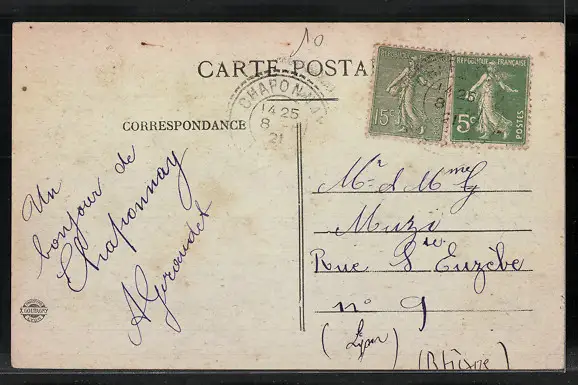 10
CARTE POSTA
CHAPONNAY
14 25
8
21
RÉPUBLIQUE FRANÇAISE
15c
5c
POSTES
CORRESPONDANCE
Un
bonjour de
Chaponnay
A Giraudet
Mr & Mme G
Muzi
Rue Ste Euzèbe
n° 9
(Lyon)
(Rhône)